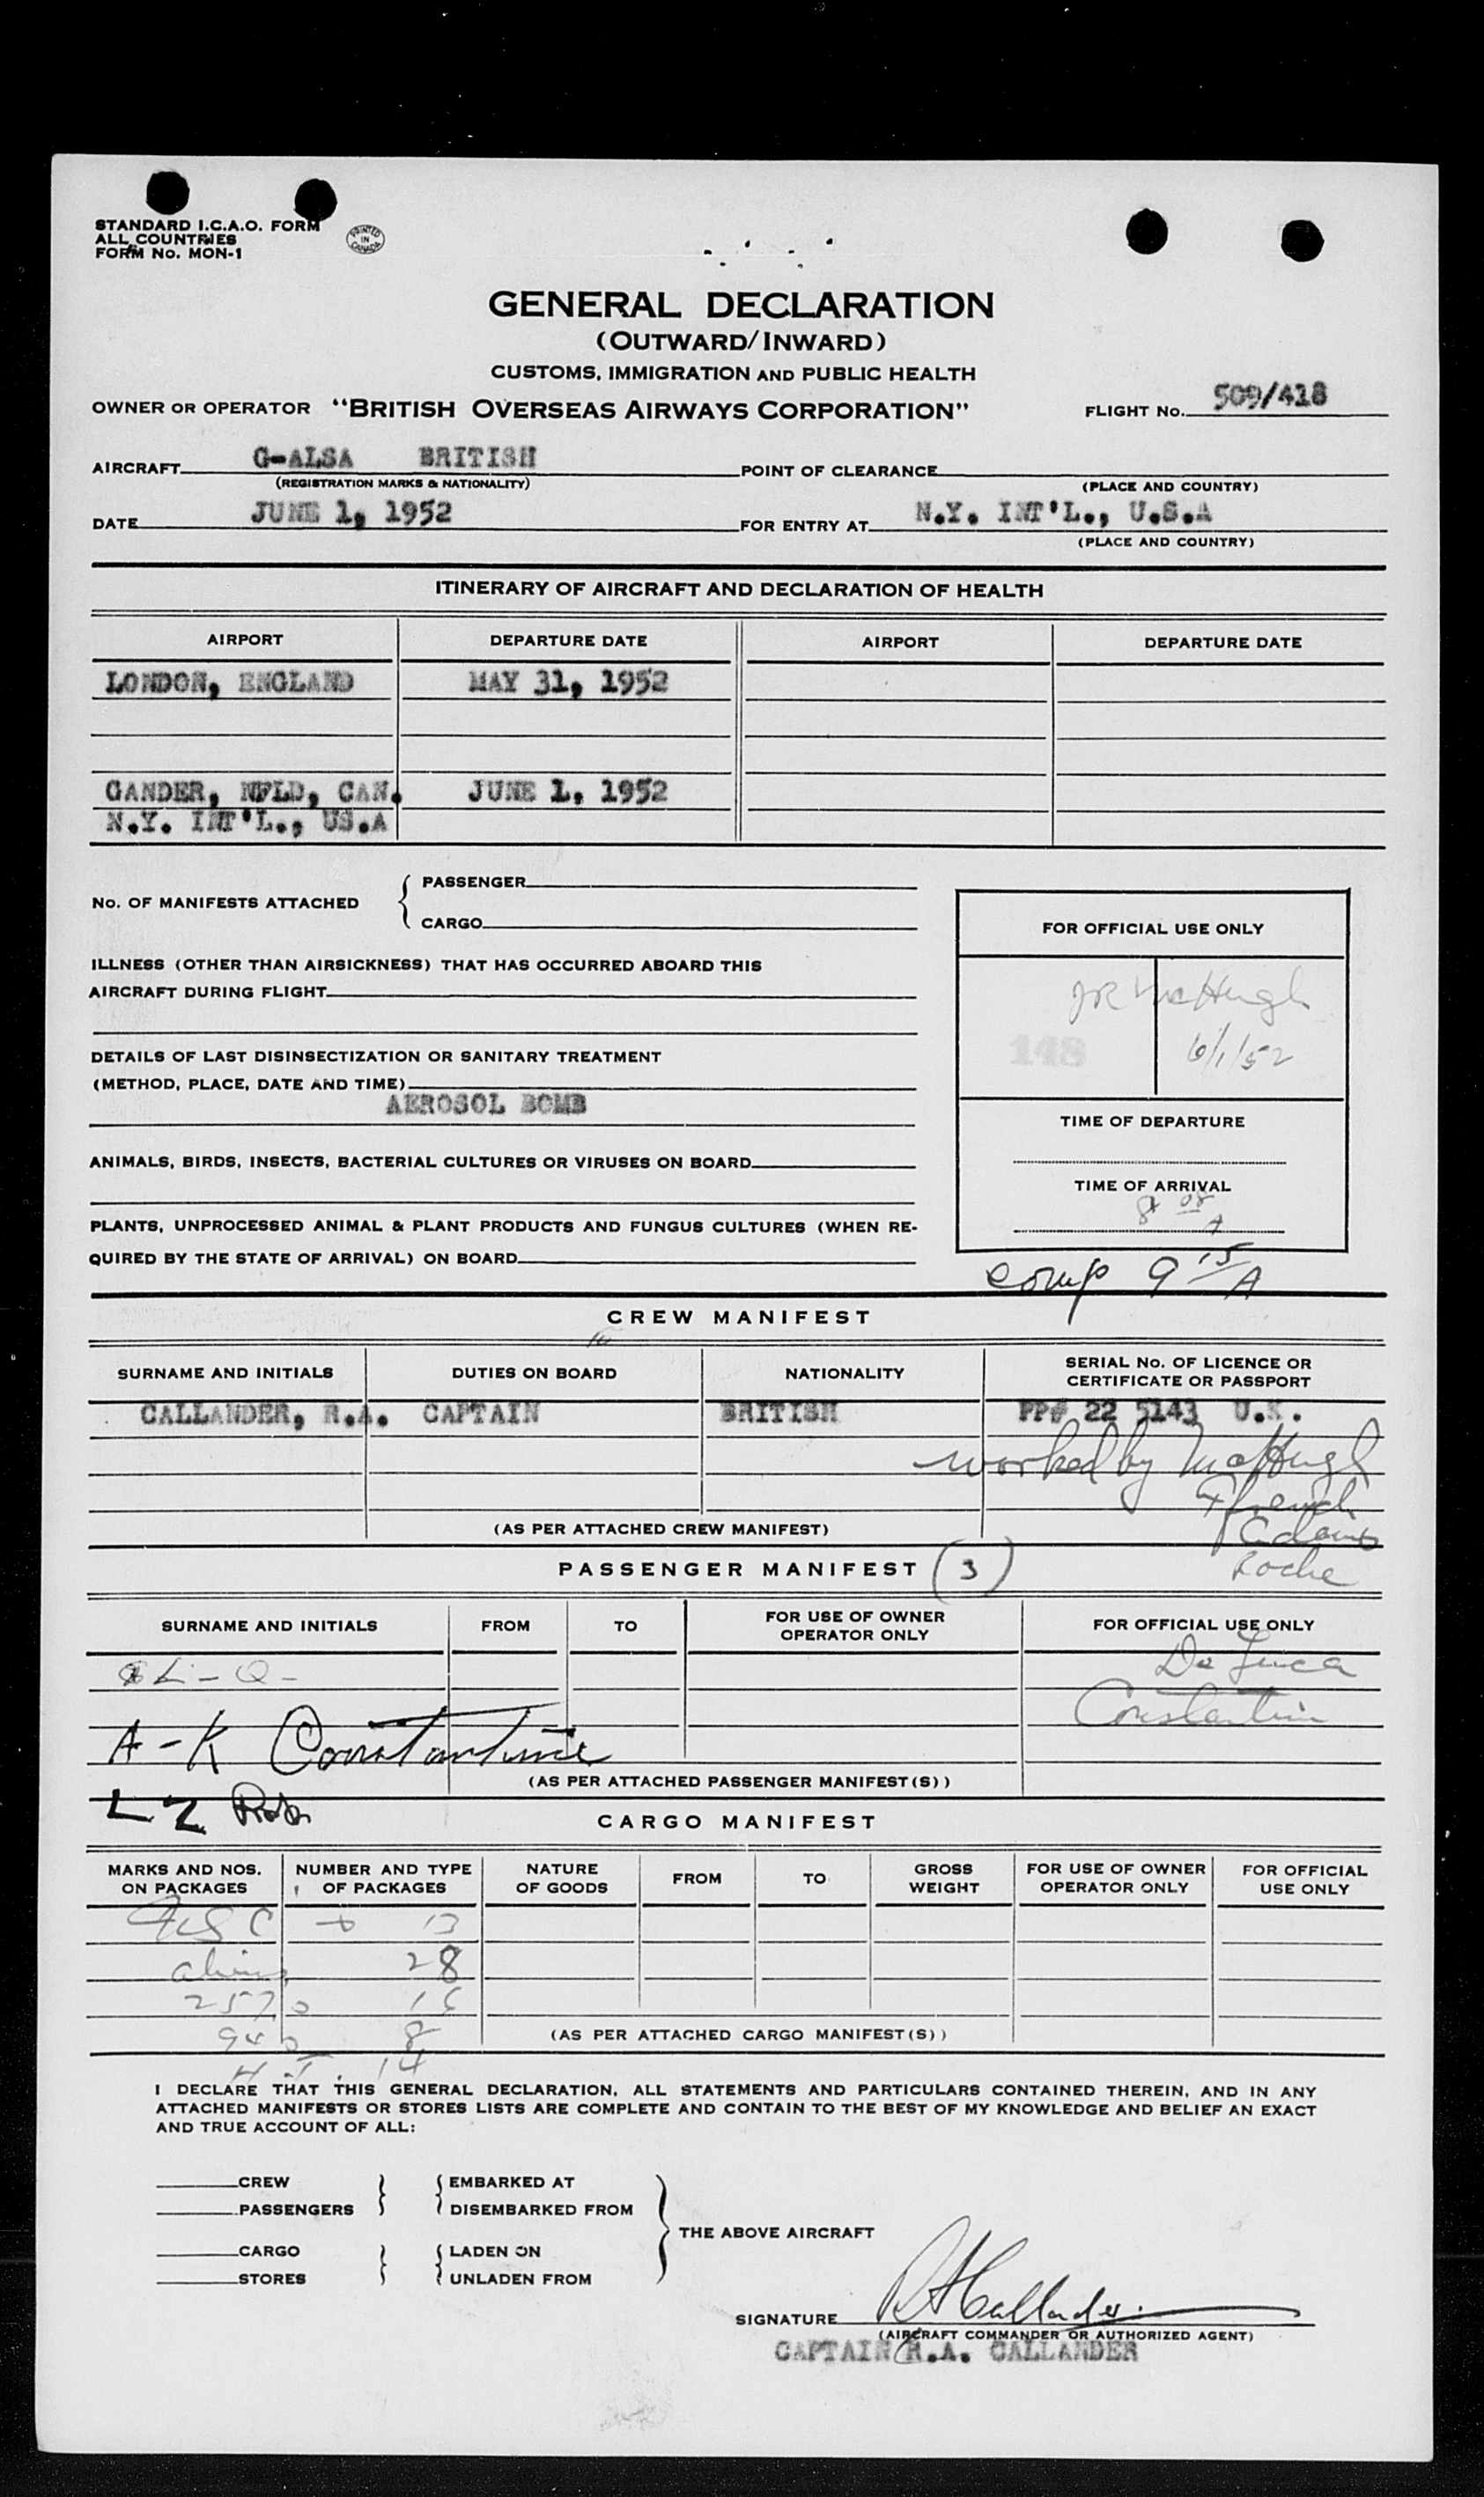 STANDARD I.C.A.O. FORM
ALL COUNTRIES
FORM No. MON-1
PRINTED IN CANADA
GENERAL DECLARATION
(OUTWARD/INWARD)
CUSTOMS, IMMIGRATION AND PUBLIC HEALTH
OWNER OR OPERATOR "BRITISH OVERSEAS AIRWAYS CORPORATION" FLIGHT No. 509/418
AIRCRAFT G-ALSA BRITISH POINT OF CLEARANCE
(REGISTRATION MARKS & NATIONALITY) (PLACE AND COUNTRY)
DATE JUNE 1, 1952 FOR ENTRY AT N.Y. INT'L., U.S.A
(PLACE AND COUNTRY)
ITINERARY OF AIRCRAFT AND DECLARATION OF HEALTH
AIRPORT DEPARTURE DATE AIRPORT DEPARTURE DATE
LONDON, ENGLAND MAY 31, 1952
GANDER, NFLD, CAN. JUNE 1, 1952
N.Y. INT'L., US.A
No. OF MANIFESTS ATTACHED { PASSENGER
CARGO
ILLNESS (OTHER THAN AIRSICKNESS) THAT HAS OCCURRED ABOARD THIS
AIRCRAFT DURING FLIGHT
DETAILS OF LAST DISINSECTIZATION OR SANITARY TREATMENT
(METHOD, PLACE, DATE AND TIME)
AEROSOL BOMB
ANIMALS, BIRDS, INSECTS, BACTERIAL CULTURES OR VIRUSES ON BOARD
PLANTS, UNPROCESSED ANIMAL & PLANT PRODUCTS AND FUNGUS CULTURES (WHEN RE-
QUIRED BY THE STATE OF ARRIVAL) ON BOARD
FOR OFFICIAL USE ONLY
JR McHugh
148 6/1/52
TIME OF DEPARTURE
TIME OF ARRIVAL
8 08 A
comp 9 15 A
CREW MANIFEST
SURNAME AND INITIALS DUTIES ON BOARD NATIONALITY SERIAL No. OF LICENCE OR
CERTIFICATE OR PASSPORT
CALLANDER, R.A. CAPTAIN BRITISH PP# 22 5143 U.K.
worked by McHugh
French
Adams
Roche
(AS PER ATTACHED CREW MANIFEST)
PASSENGER MANIFEST (3)
SURNAME AND INITIALS FROM TO FOR USE OF OWNER
OPERATOR ONLY FOR OFFICIAL USE ONLY
De Luca
Constantine
A-K Constantine
(AS PER ATTACHED PASSENGER MANIFEST(S))
L Z
CARGO MANIFEST
MARKS AND NOS.
ON PACKAGES NUMBER AND TYPE
OF PACKAGES NATURE
OF GOODS FROM TO GROSS
WEIGHT FOR USE OF OWNER
OPERATOR ONLY FOR OFFICIAL
USE ONLY
USC 13
aliens 28
16
8
14
(AS PER ATTACHED CARGO MANIFEST(S))
I DECLARE THAT THIS GENERAL DECLARATION, ALL STATEMENTS AND PARTICULARS CONTAINED THEREIN, AND IN ANY
ATTACHED MANIFESTS OR STORES LISTS ARE COMPLETE AND CONTAIN TO THE BEST OF MY KNOWLEDGE AND BELIEF AN EXACT
AND TRUE ACCOUNT OF ALL:
CREW EMBARKED AT
PASSENGERS DISEMBARKED FROM
THE ABOVE AIRCRAFT
CARGO LADEN ON
STORES UNLADEN FROM
SIGNATURE RA Callander
(AIRCRAFT COMMANDER OR AUTHORIZED AGENT)
CAPTAIN R.A. CALLANDER